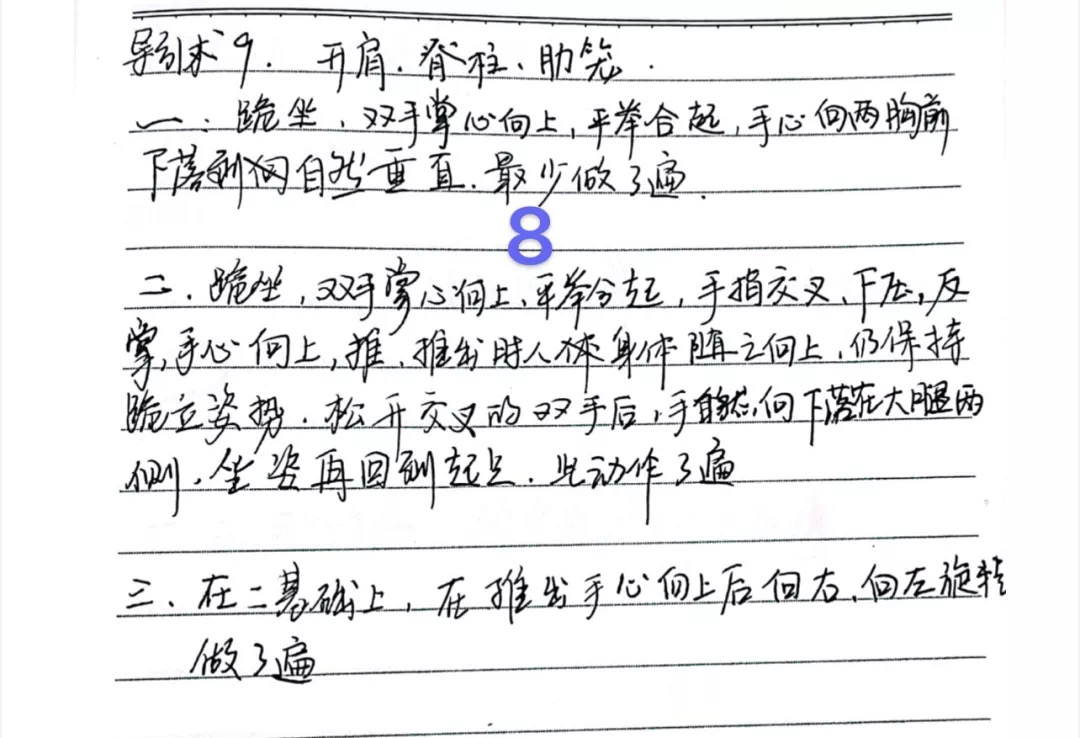 导引术9. 开肩、脊柱、肋笼.
一、跪坐，双手掌心向上，平举合起，手心向两胸前
下落到向自然垂直.最少做3遍.
8
二、跪坐，双手掌心向上，平举合起，手指交叉、下压，反
掌，手心向上，推、推出时人体身体随之向上，仍保持
跪立姿势.松开交叉的双手后，手自然向下落在大腿两
侧、坐姿再回到起点.此动作3遍
三、在二基础上，在推出手心向上后向右、向左旋转
做3遍